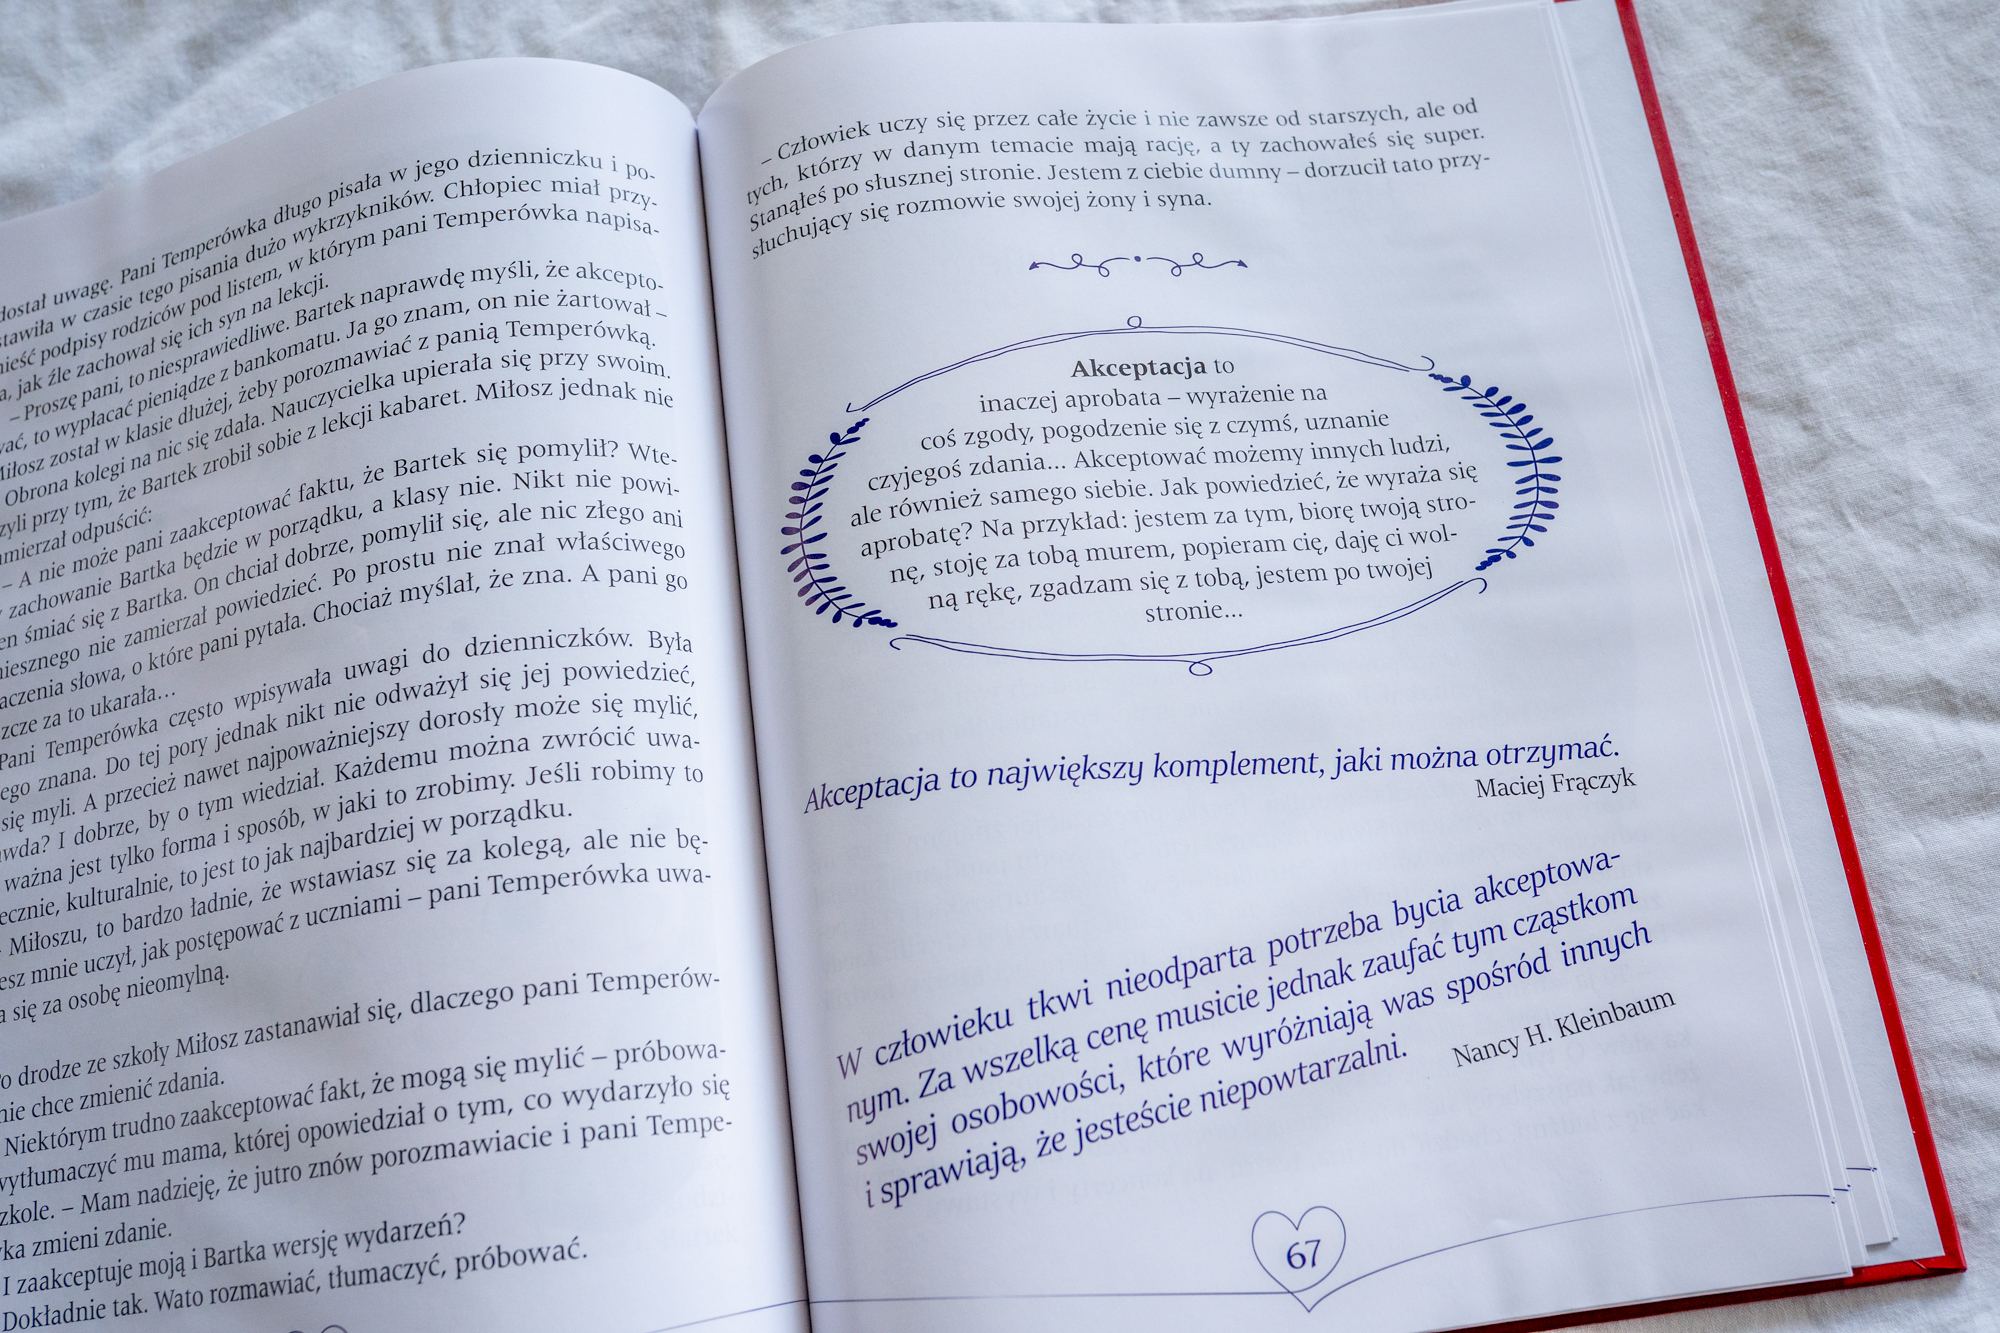 dostał uwagę. Pani Temperówka długo pisała w jego dzienniczku i po-
stawiła w czasie tego pisania dużo wykrzykników. Chłopiec miał przy-
nieść podpisy rodziców pod listem, w którym pani Temperówka napisa-
a, jak źle zachował się ich syn na lekcji.
– Proszę pani, to niesprawiedliwe. Bartek naprawdę myśli, że akcepto-
wać, to wypłacać pieniądze z bankomatu. Ja go znam, on nie żartował –
Miłosz został w klasie dłużej, żeby porozmawiać z panią Temperówką.
Obrona kolegi na nic się zdała. Nauczycielka upierała się przy swoim.
zyli przy tym, że Bartek zrobił sobie z lekcji kabaret. Miłosz jednak nie
amierzał odpuścić:
– A nie może pani zaakceptować faktu, że Bartek się pomylił? Wte-
y zachowanie Bartka będzie w porządku, a klasy nie. Nikt nie powi-
en śmiać się z Bartka. On chciał dobrze, pomylił się, ale nic złego ani
miesznego nie zamierzał powiedzieć. Po prostu nie znał właściwego
aczenia słowa, o które pani pytała. Chociaż myślał, że zna. A pani go
zcze za to ukarała...
Pani Temperówka często wpisywała uwagi do dzienniczków. Była
ego znana. Do tej pory jednak nikt nie odważył się jej powiedzieć,
się myli. A przecież nawet najpoważniejszy dorosły może się mylić,
awda? I dobrze, by o tym wiedział. Każdemu można zwrócić uwa-
ważna jest tylko forma i sposób, w jaki to zrobimy. Jeśli robimy to
ecznie, kulturalnie, to jest to jak najbardziej w porządku.
– Miłoszu, to bardzo ładnie, że wstawiasz się za kolegą, ale nie bę-
esz mnie uczył, jak postępować z uczniami – pani Temperówka uwa-
a się za osobę nieomylną.
o drodze ze szkoły Miłosz zastanawiał się, dlaczego pani Temperów-
nie chce zmienić zdania.
Niektórym trudno zaakceptować fakt, że mogą się mylić – próbowa-
wytłumaczyć mu mama, której opowiedział o tym, co wydarzyło się
zkole. – Mam nadzieję, że jutro znów porozmawiacie i pani Tempe-
ka zmieni zdanie.
I zaakceptuje moją i Bartka wersję wydarzeń?
Dokładnie tak. Wato rozmawiać, tłumaczyć, próbować.
– Człowiek uczy się przez całe życie i nie zawsze od starszych, ale od
tych, którzy w danym temacie mają rację, a ty zachowałeś się super.
Stanąłeś po słusznej stronie. Jestem z ciebie dumny – dorzucił tato przy-
słuchujący się rozmowie swojej żony i syna.
Akceptacja to
inaczej aprobata – wyrażenie na
coś zgody, pogodzenie się z czymś, uznanie
czyjegoś zdania... Akceptować możemy innych ludzi,
ale również samego siebie. Jak powiedzieć, że wyraża się
aprobatę? Na przykład: jestem za tym, biorę twoją stro-
nę, stoję za tobą murem, popieram cię, daję ci wol-
ną rękę, zgadzam się z tobą, jestem po twojej
stronie...
Akceptacja to największy komplement, jaki można otrzymać.
Maciej Frączyk
W człowieku tkwi nieodparta potrzeba bycia akceptowa-
nym. Za wszelką cenę musicie jednak zaufać tym cząstkom
swojej osobowości, które wyróżniają was spośród innych
i sprawiają, że jesteście niepowtarzalni.
Nancy H. Kleinbaum
67